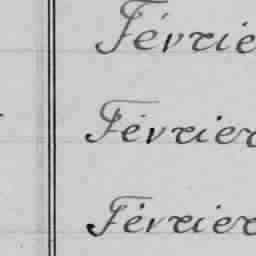 Févrie
Février
Février